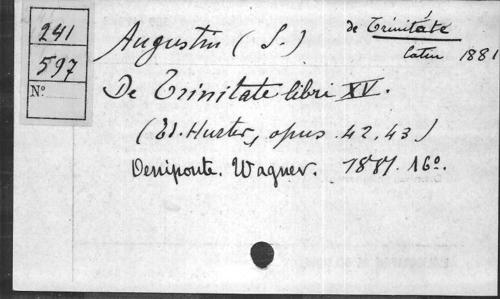 241
597
N.º
Augustin (S.)
de Trinitate
latin 1881
De Trinitate libri XV.
(Ed. Hurter, opus. 42, 43)
Oeniponte. Wagner. 1881. 16º.